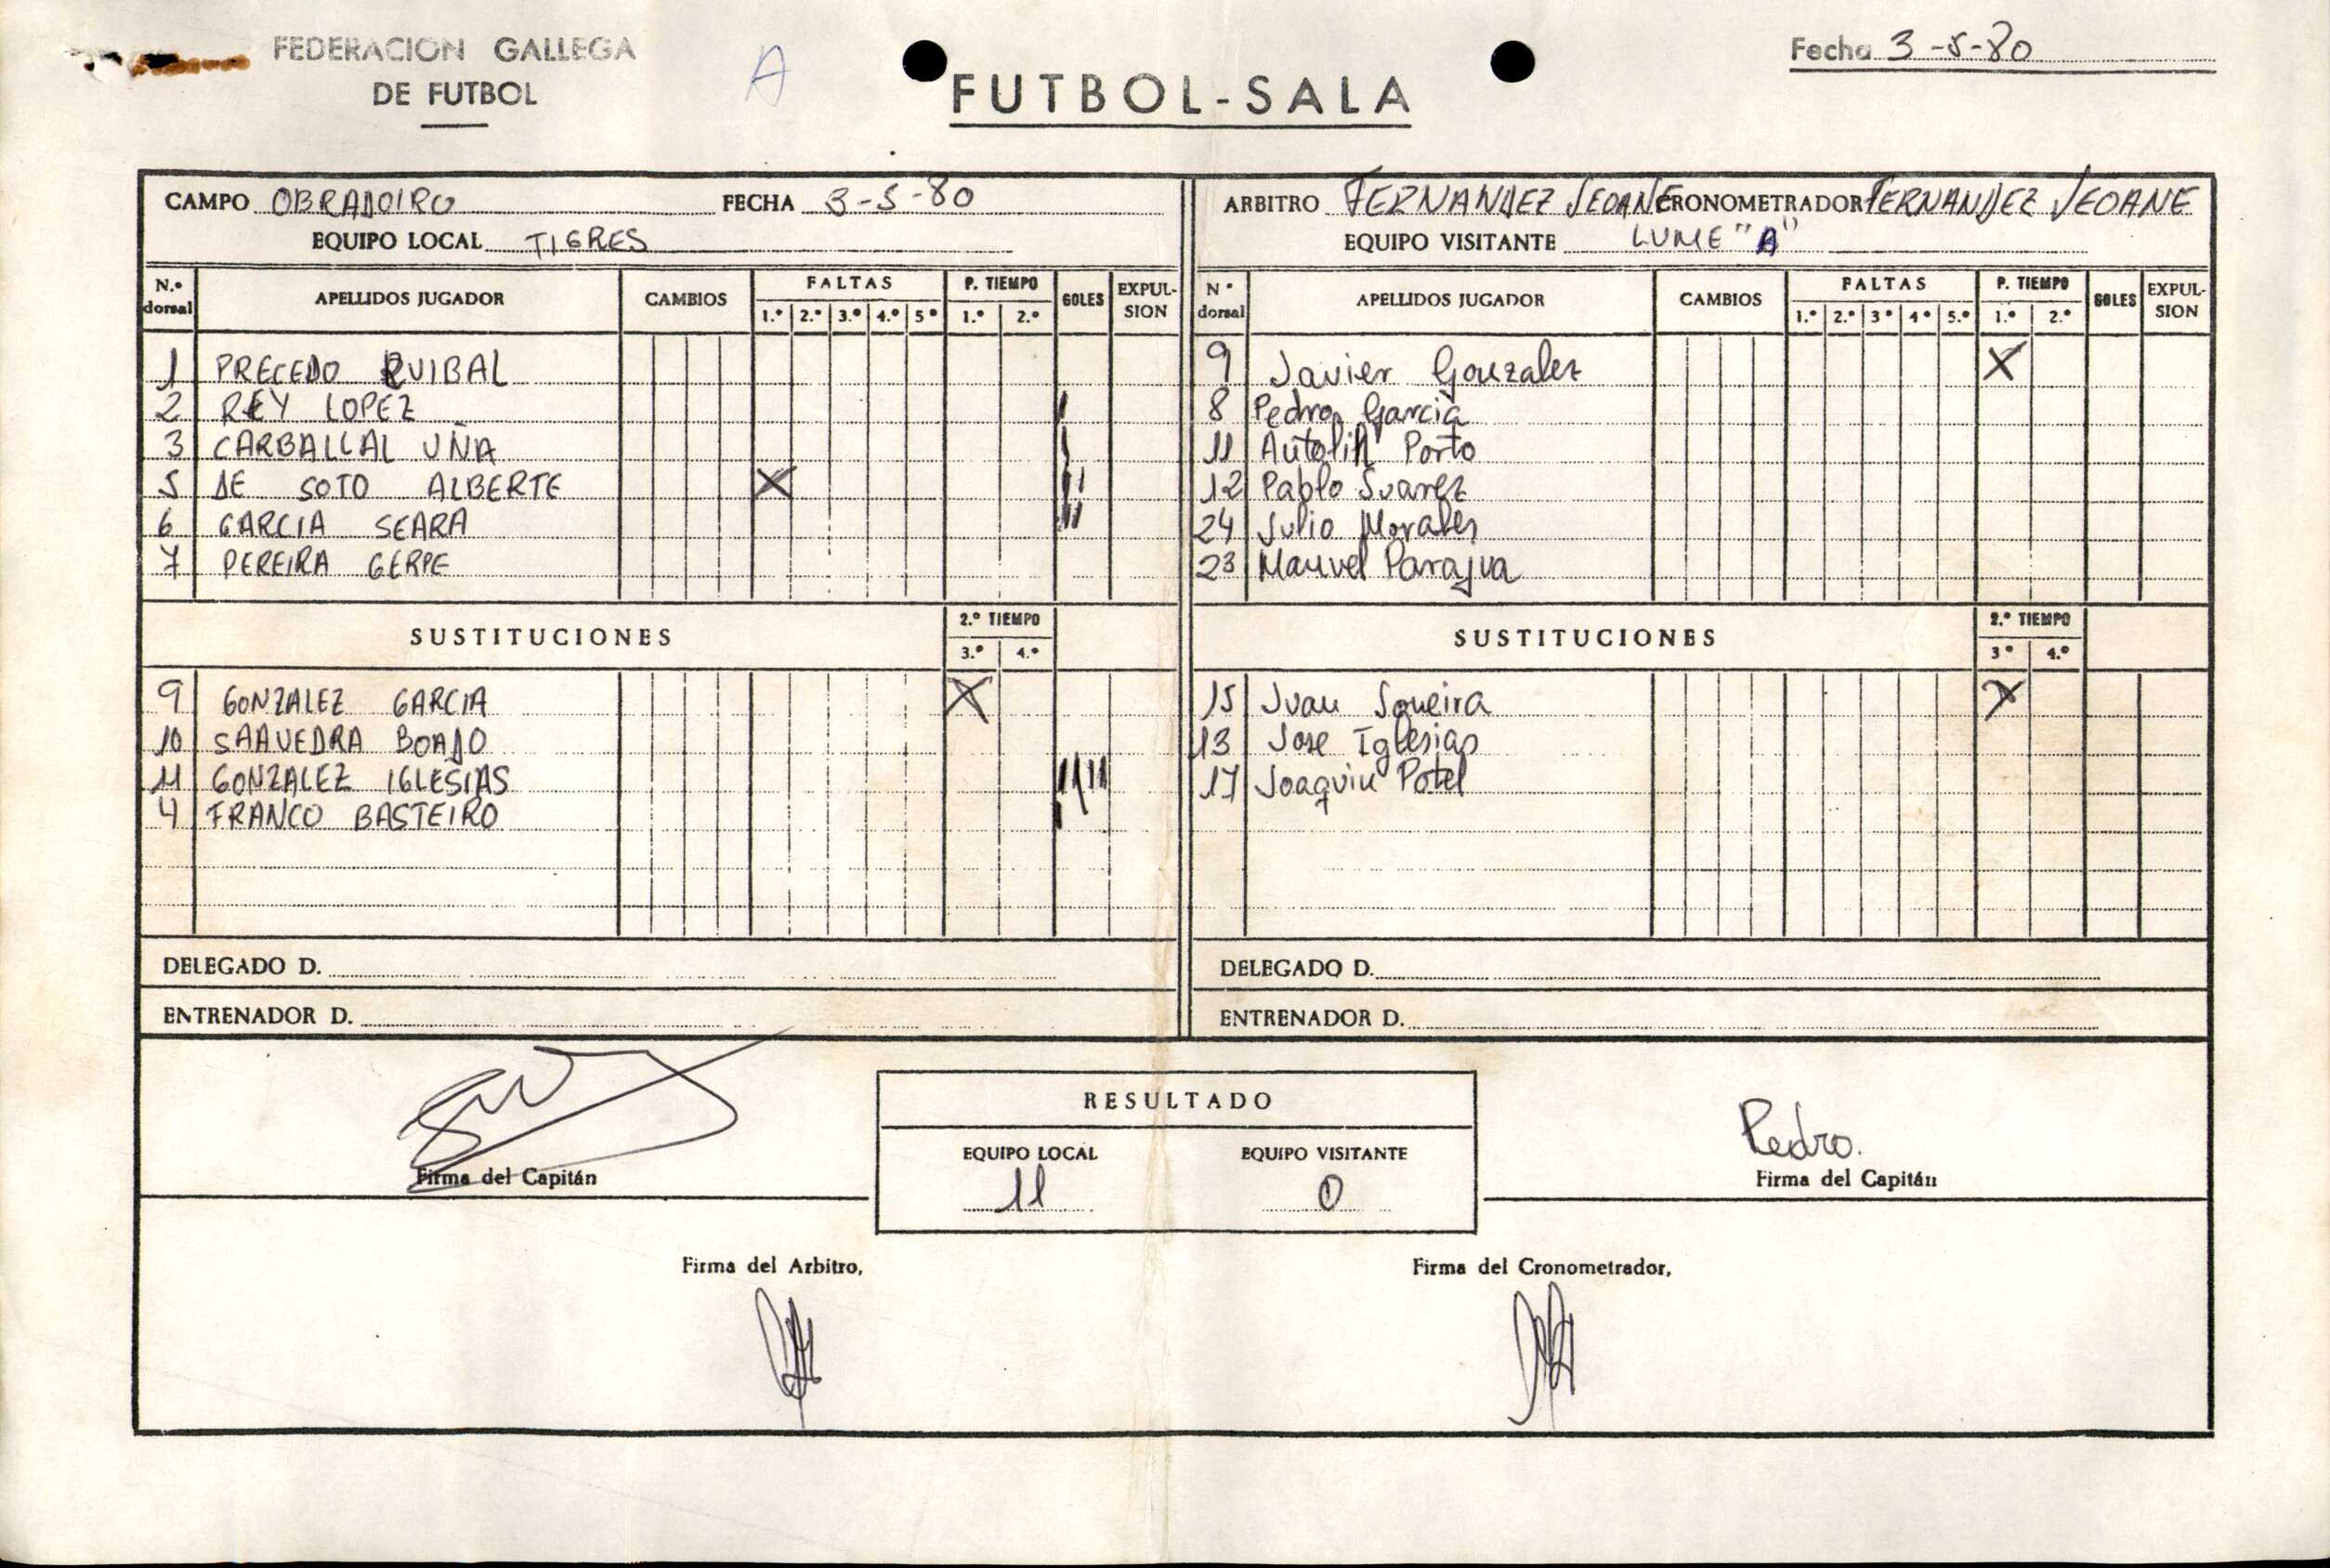 FEDERACION GALLEGA
DE FUTBOL
A
FUTBOL-SALA
Fecha 3-5-80
CAMPO OBRADOIRO FECHA 3-5-80
EQUIPO LOCAL TIGRES
N.º dorsal APELLIDOS JUGADOR CAMBIOS FALTAS 1.º 2.º 3.º 4.º 5º P. TIEMPO 1.º 2.º GOLES EXPULSION
1 PRECEDO RUIBAL
2 REY LOPEZ I
3 CARBALLAL UÑA I
5 DE SOTO ALBERTE X II
6 GARCIA SEARA II
7 PEREIRA GERPE
SUSTITUCIONES 2.º TIEMPO 3.º 4.º
9 GONZALEZ GARCIA X
10 SAAVEDRA BOADO
11 GONZALEZ IGLESIAS IIII
4 FRANCO BASTEIRO I
DELEGADO D.
ENTRENADOR D.
ARBITRO FERNANDEZ SEOANE CRONOMETRADOR FERNANDEZ SEOANE
EQUIPO VISITANTE LUME "A"
N º dorsal APELLIDOS JUGADOR CAMBIOS FALTAS 1.º 2.º 3º 4º 5.º P. TIEMPO 1.º 2.º GOLES EXPULSION
9 Javier Gonzalez X
8 Pedro Garcia
11 Antolin Porto
12 Pablo Suarez
24 Julio Morales
23 Manuel Parajua
SUSTITUCIONES 2.º TIEMPO 3º 4.º
15 Juan Sqneira X
13 Jose Iglesias
17 Joaquin Potel
DELEGADO D.
ENTRENADOR D.
Firma del Capitán
RESULTADO
EQUIPO LOCAL EQUIPO VISITANTE
11 0
Pedro.
Firma del Capitán
Firma del Arbitro,
Firma del Cronometrador,